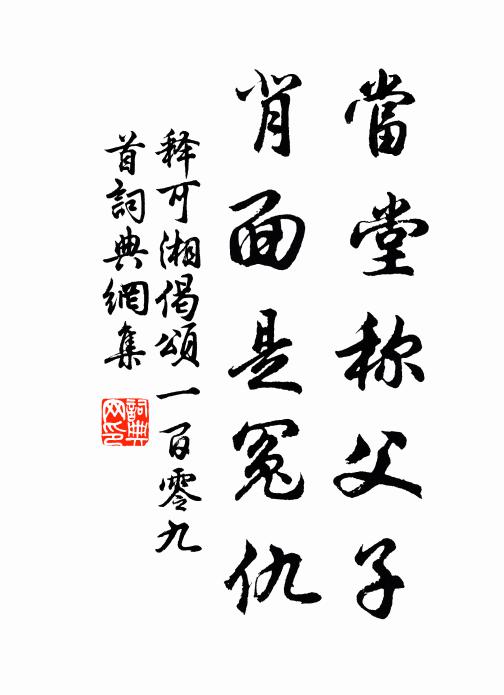 當堂称父子
背面是冤仇
释可湘偈頌一百零九
首詞典網集
詞典
网印